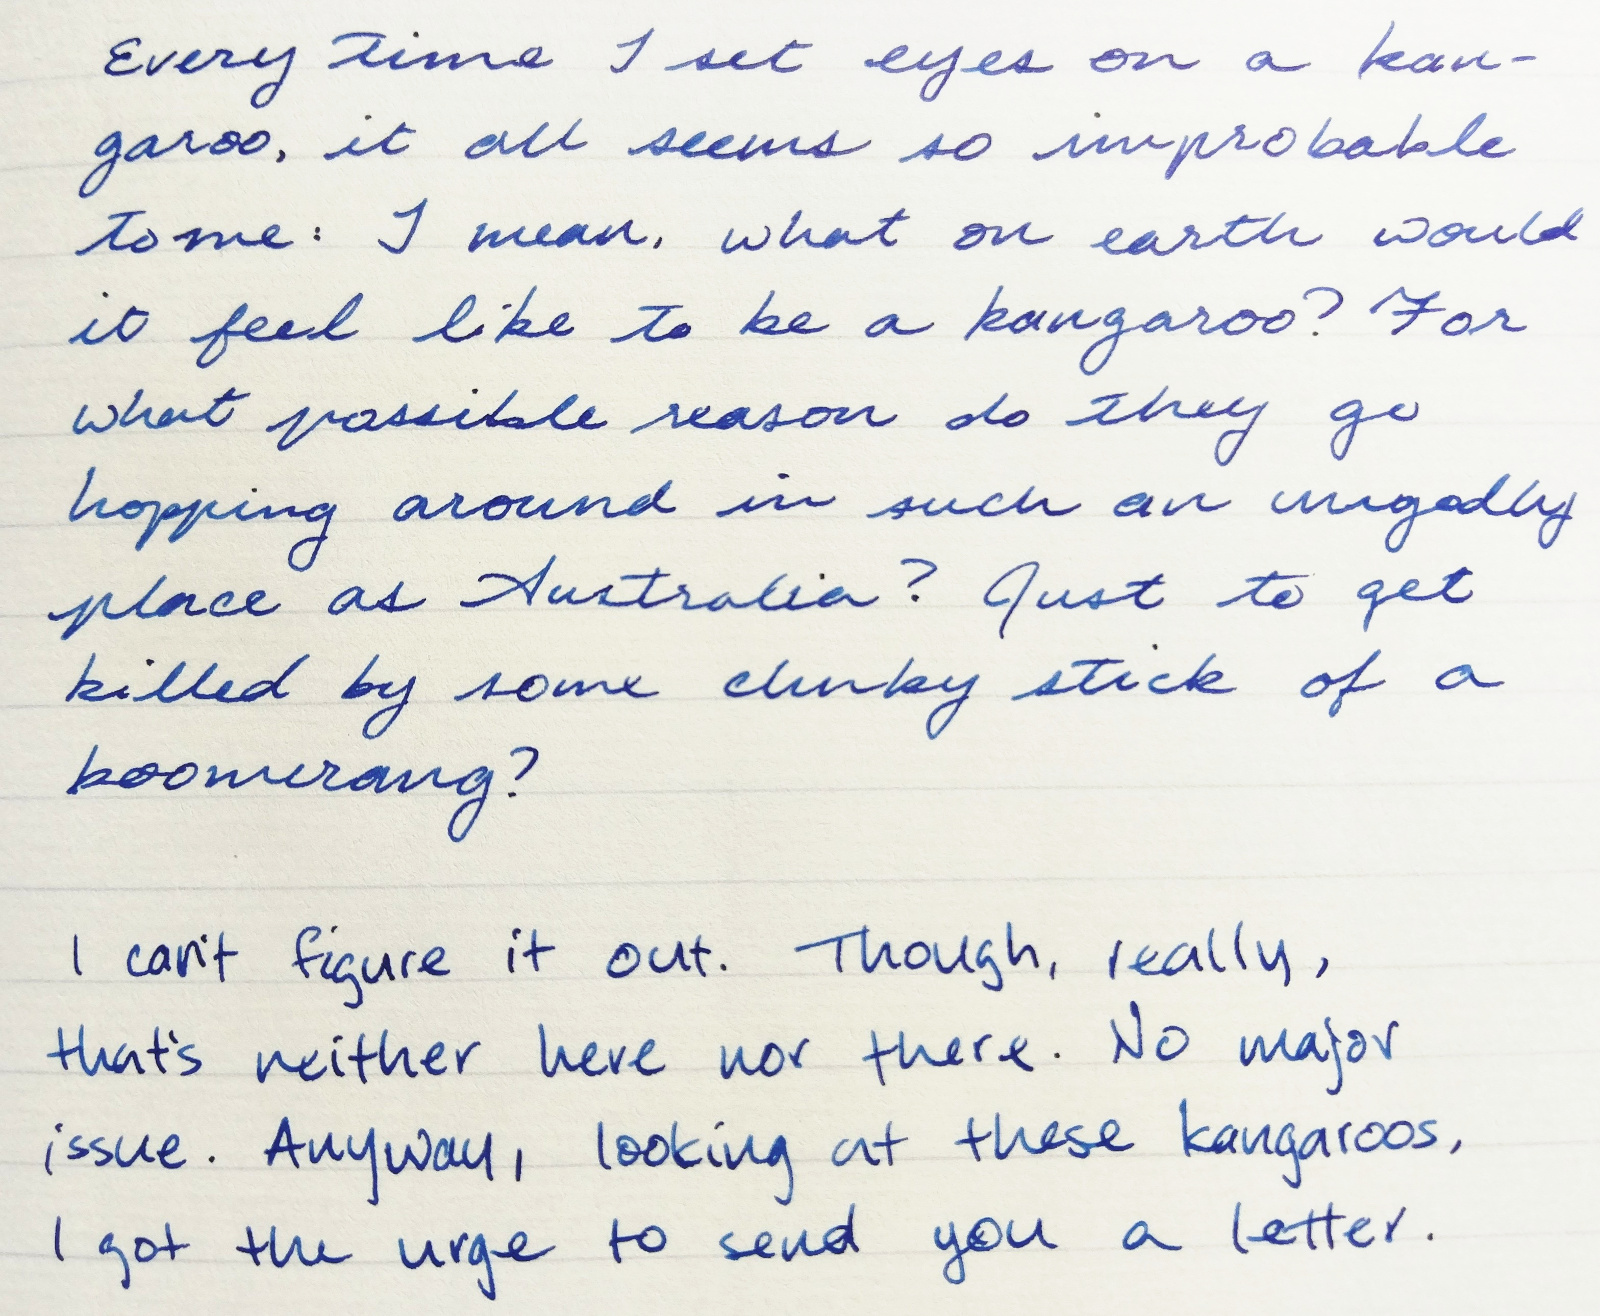 Every time I set eyes on a kan-
garoo, it all seems so improbable
to me: I mean, what on earth would
it feel like to be a kangaroo? For
what possible reason do they go
hopping around in such an ungodly
place as Australia? Just to get
killed by some clunky stick of a
boomerang?
I can't figure it out. Though, really,
that's neither here nor there. No major
issue. Anyway, looking at these kangaroos,
I got the urge to send you a letter.